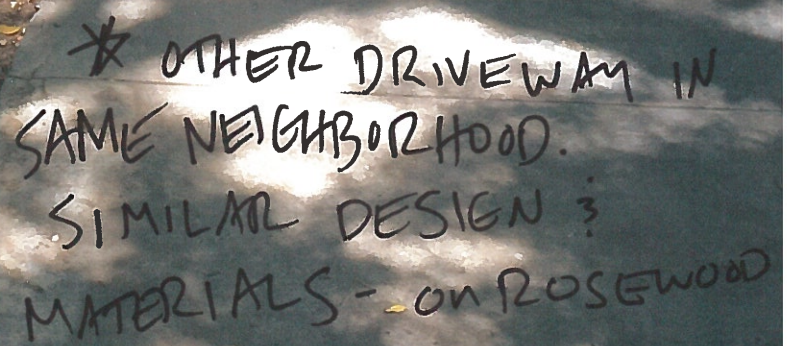 * OTHER DRIVEWAY IN
SAME NEIGHBORHOOD.
SIMILAR DESIGN &
MATERIALS - on ROSEWOOD